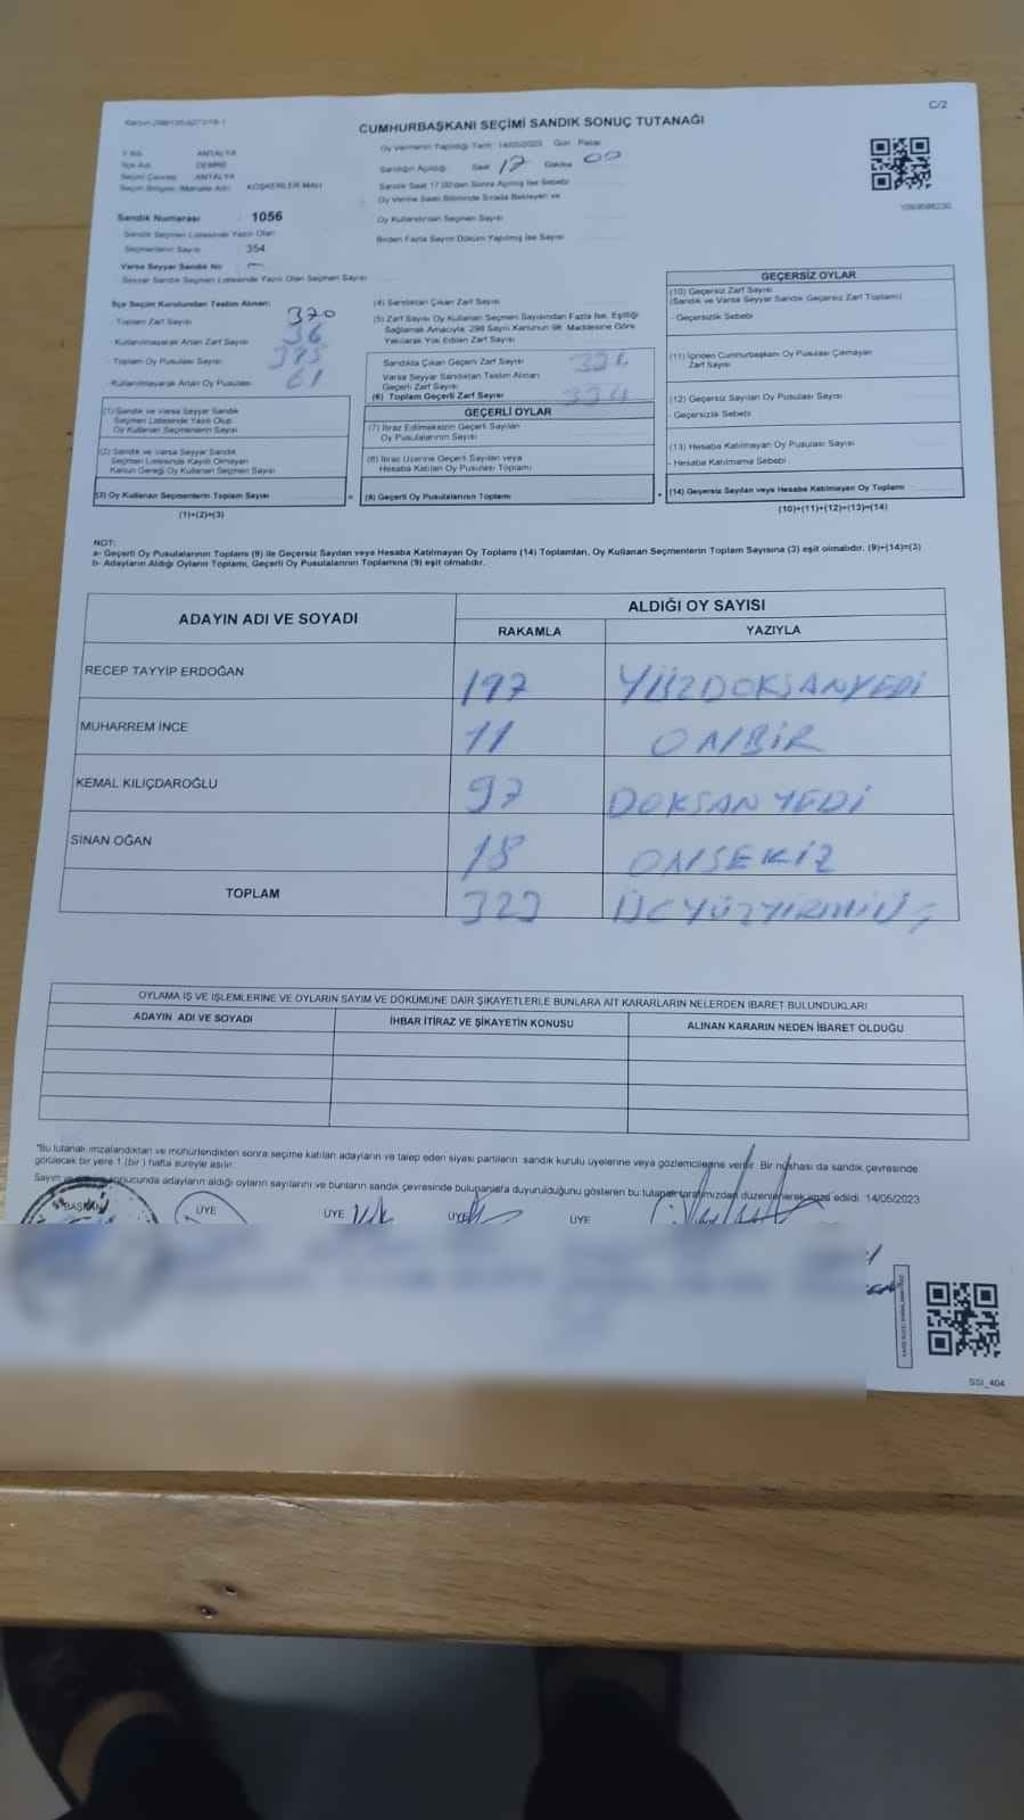 C/2
CUMHURBAŞKANI SEÇİMİ SANDIK SONUÇ TUTANAĞI
Oy Vermenin Yapıldığı Tarih: 14/05/2023 Gün: Pazar
İl Adı ANTALYA
İlçe Adı DEMRE
Seçim Çevresi ANTALYA
KÖŞKERLER MAH.
Sandığın Açıldığı Saat 17 Dakika 00
Sandık Saat 17.00'den Sonra Açılmış İse Sebebi
Oy Verme Saati Bitiminde Sırada Bekleyen ve
Oy Kullandırılan Seçmen Sayısı
Birden Fazla Sayım Döküm Yapılmış İse Sayısı
Sandık Numarası 1056
Sandık Seçmen Listesinde Yazılı Olan
Seçmenlerin Sayısı 354
Varsa Seyyar Sandık No —
Seyyar Sandık Seçmen Listesinde Yazılı Olan Seçmen Sayısı
İlçe Seçim Kurulundan Teslim Alınan;
- Toplam Zarf Sayısı 370
- Kullanılmayarak Artan Zarf Sayısı 36
- Toplam Oy Pusulası Sayısı
- Kullanılmayarak Artan Oy Pusulası 61
(1) Sandık ve Varsa Seyyar Sandık
Seçmen Listesinde Yazılı Olup
Oy Kullanan Seçmenlerin Sayısı
(2) Sandık ve Varsa Seyyar Sandık
Seçmen Listesinde Kayıtlı Olmayan
Kanun Gereği Oy Kullanan Seçmen Sayısı
(3) Oy Kullanan Seçmenlerin Toplam Sayısı
(1)+(2)=(3)
(4) Sandıktan Çıkan Zarf Sayısı
(5) Zarf Sayısı Oy Kullanan Seçmen Sayısından Fazla İse, Eşitliği
Sağlamak Amacıyla, 298 Sayılı Kanunun 98. Maddesine Göre
Yakılarak Yok Edilen Zarf Sayısı
Sandıkta Çıkan Geçerli Zarf Sayısı
Varsa Seyyar Sandıktan Teslim Alınan
Geçerli Zarf Sayısı
(6) Toplam Geçerli Zarf Sayısı 334
GEÇERLİ OYLAR
(7) İtiraz Edilmeksizin Geçerli Sayılan
Oy Pusulalarının Sayısı
(8) İtiraz Üzerine Geçerli Sayılan veya
Hesaba Katılan Oy Pusulası Toplamı
(9) Geçerli Oy Pusulalarının Toplamı
GEÇERSİZ OYLAR
(10) Geçersiz Zarf Sayısı
(Sandık ve Varsa Seyyar Sandık Geçersiz Zarf Toplamı)
- Geçersizlik Sebebi
(11) İçinden Cumhurbaşkanı Oy Pusulası Çıkmayan
Zarf Sayısı
(12) Geçersiz Sayılan Oy Pusulası Sayısı
- Geçersizlik Sebebi
(13) Hesaba Katılmayan Oy Pusulası Sayısı
- Hesaba Katılmama Sebebi
(14) Geçersiz Sayılan veya Hesaba Katılmayan Oy Toplamı
(10)+(11)+(12)+(13)=(14)
NOT:
a- Geçerli Oy Pusulalarının Toplamı (9) ile Geçersiz Sayılan veya Hesaba Katılmayan Oy Toplamı (14) Toplamları, Oy Kullanan Seçmenlerin Toplam Sayısına (3) eşit olmalıdır. (9)+(14)=(3)
b- Adayların Aldığı Oyların Toplamı, Geçerli Oy Pusulalarının Toplamına (9) eşit olmalıdır.
ADAYIN ADI VE SOYADI
ALDIĞI OY SAYISI
RAKAMLA YAZIYLA
RECEP TAYYİP ERDOĞAN 197 YÜZDOKSANYEDİ
MUHARREM İNCE 11 ONBİR
KEMAL KILIÇDAROĞLU 97 DOKSANYEDİ
SİNAN OĞAN 18 ONSEKİZ
TOPLAM 323 ÜÇYÜZYİRMİÜÇ
OYLAMA İŞ VE İŞLEMLERİNE VE OYLARIN SAYIM VE DÖKÜMÜNE DAİR ŞİKAYETLERLE BUNLARA AİT KARARLARIN NELERDEN İBARET BULUNDUKLARI
ADAYIN ADI VE SOYADI İHBAR İTİRAZ VE ŞİKAYETİN KONUSU ALINAN KARARIN NEDEN İBARET OLDUĞU
*Bu tutanak imzalandıktan ve mühürlendikten sonra seçime katılan adayların ve talep eden siyasi partilerin sandık kurulu üyelerine veya gözlemcilerine verilir. Bir nüshası da sandık çevresinde
görülecek bir yere 1 (bir) hafta süreyle asılır.
Sayım sonucunda adayların aldığı oyların sayılarını ve bunların sandık çevresinde bulunanlara duyurulduğunu gösteren bu tutanak tarafımızdan düzenlenerek imza edildi. 14/05/2023
BAŞKAN ÜYE ÜYE ÜYE ÜYE
SSI_404